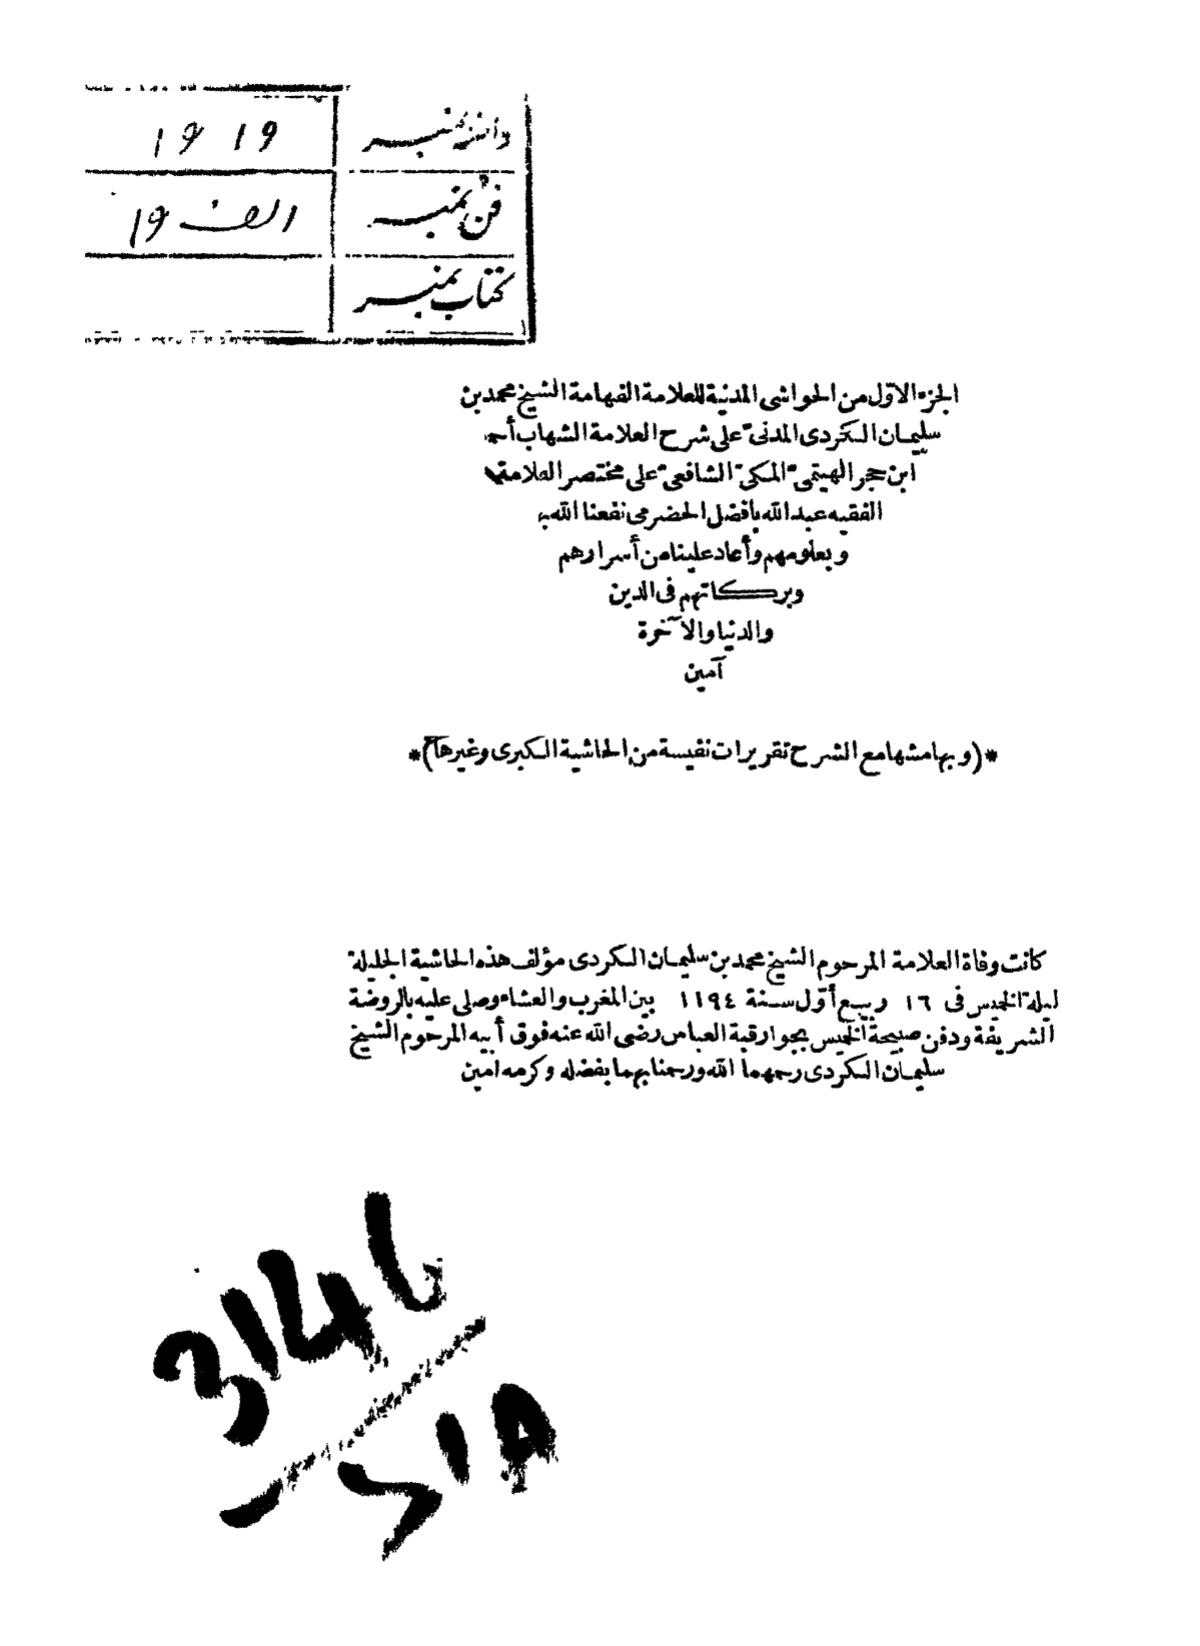 داخلہ نمبر ١٩ ١٩
فن نمبر الف ١٩
کتاب نمبر
الجزء الاوّل من الحواشى المدنية للعلامة الفهامة الشيخ محمد بن
سليمان الكردى المدنىّ على شرح العلامة الشهاب أحمد
ابن حجر الهيتمىّ المكىّ الشافعىّ على مختصر العلامة
الفقيه عبد الله بافضل الحضرمى نفعنا الله به
وبعلومهم وأعاد علينا من أسرارهم
وبركاتهم فى الدين
والدنيا والآخرة
آمين
*(وبهامشها مع الشرح تقريرات نفيسة من الحاشية الكبرى وغيرها)*
كانت وفاة العلامة المرحوم الشيخ محمد بن سليمان الكردى مؤلف هذه الحاشية الجليلة
ليلة الخميس فى ١٦ ربيع أوّل سنة ١١٩٤ بين المغرب والعشاء وصلى عليه بالروضة
الشريفة ودفن صبيحة الخميس بجوار قبة العباس رضى الله عنه فوق أبيه المرحوم الشيخ
سليمان الكردى رحمهما الله ورحمنا بهما بفضله وكرمه آمين